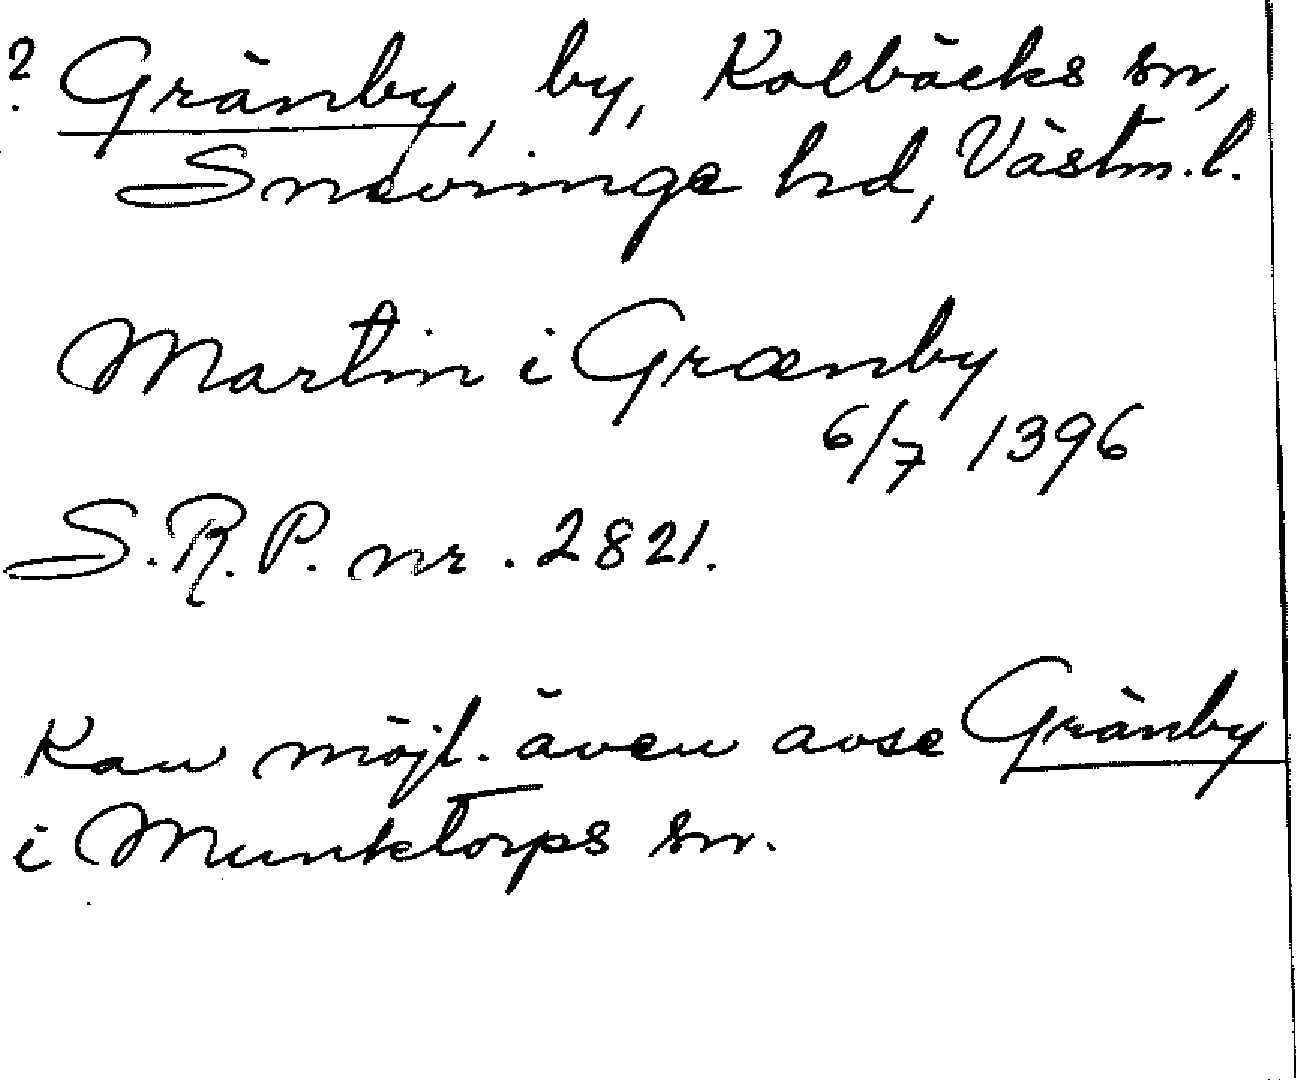 ? Gränby, by, Kolbäcks sn,
Snevringe hd, Västm. l.
Martin i Grænby
6/7 1396
S.R.P. nr. 2821.
Kan möjl. även avse Gränby
i Munktorps sn.